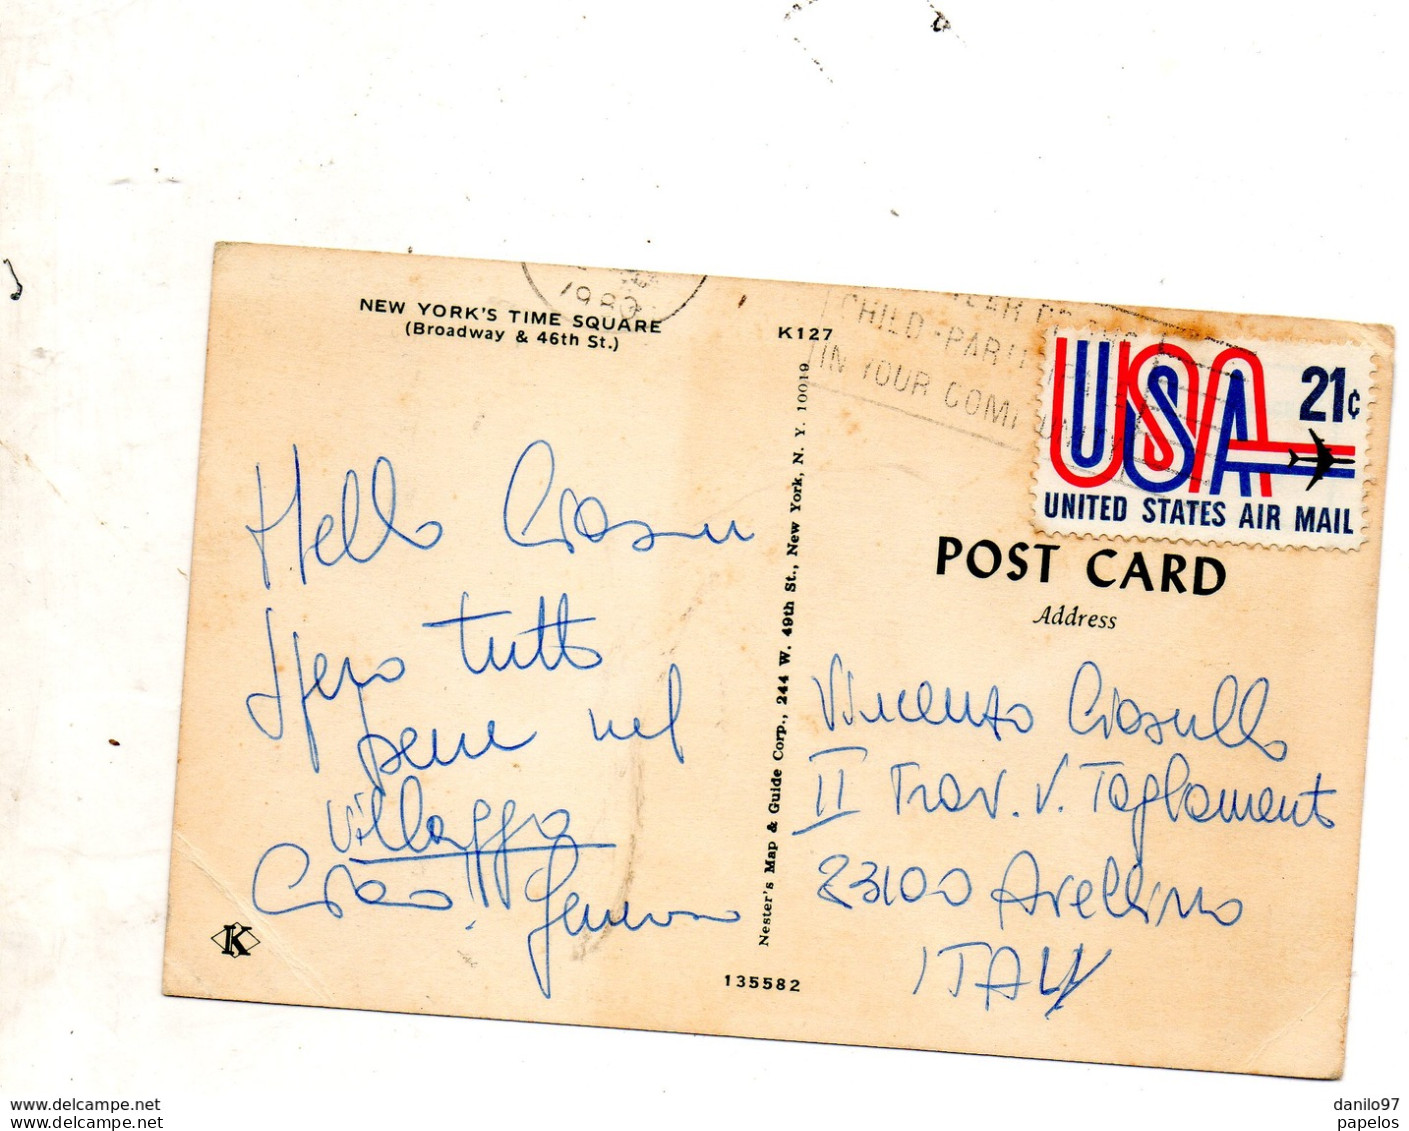 NEW YORK'S TIME SQUARE
(Broadway & 46th St.)
K127
1980
CHILD-PARTI
IN YOUR COMMUNITY
USA 21¢
UNITED STATES AIR MAIL
POST CARD
Address
Hello
Spero tutto
bene nel
villaggio
Ciao!!
Vincenzo Ciasullo
II Trav. V. Tagliamento
83100 Avellino
ITALY
Nester's Map & Guide Corp., 244 W. 49th St., New York, N. Y. 10019
K
135582
danilo97
www.delcampe.net
papelos
www.delcampe.net